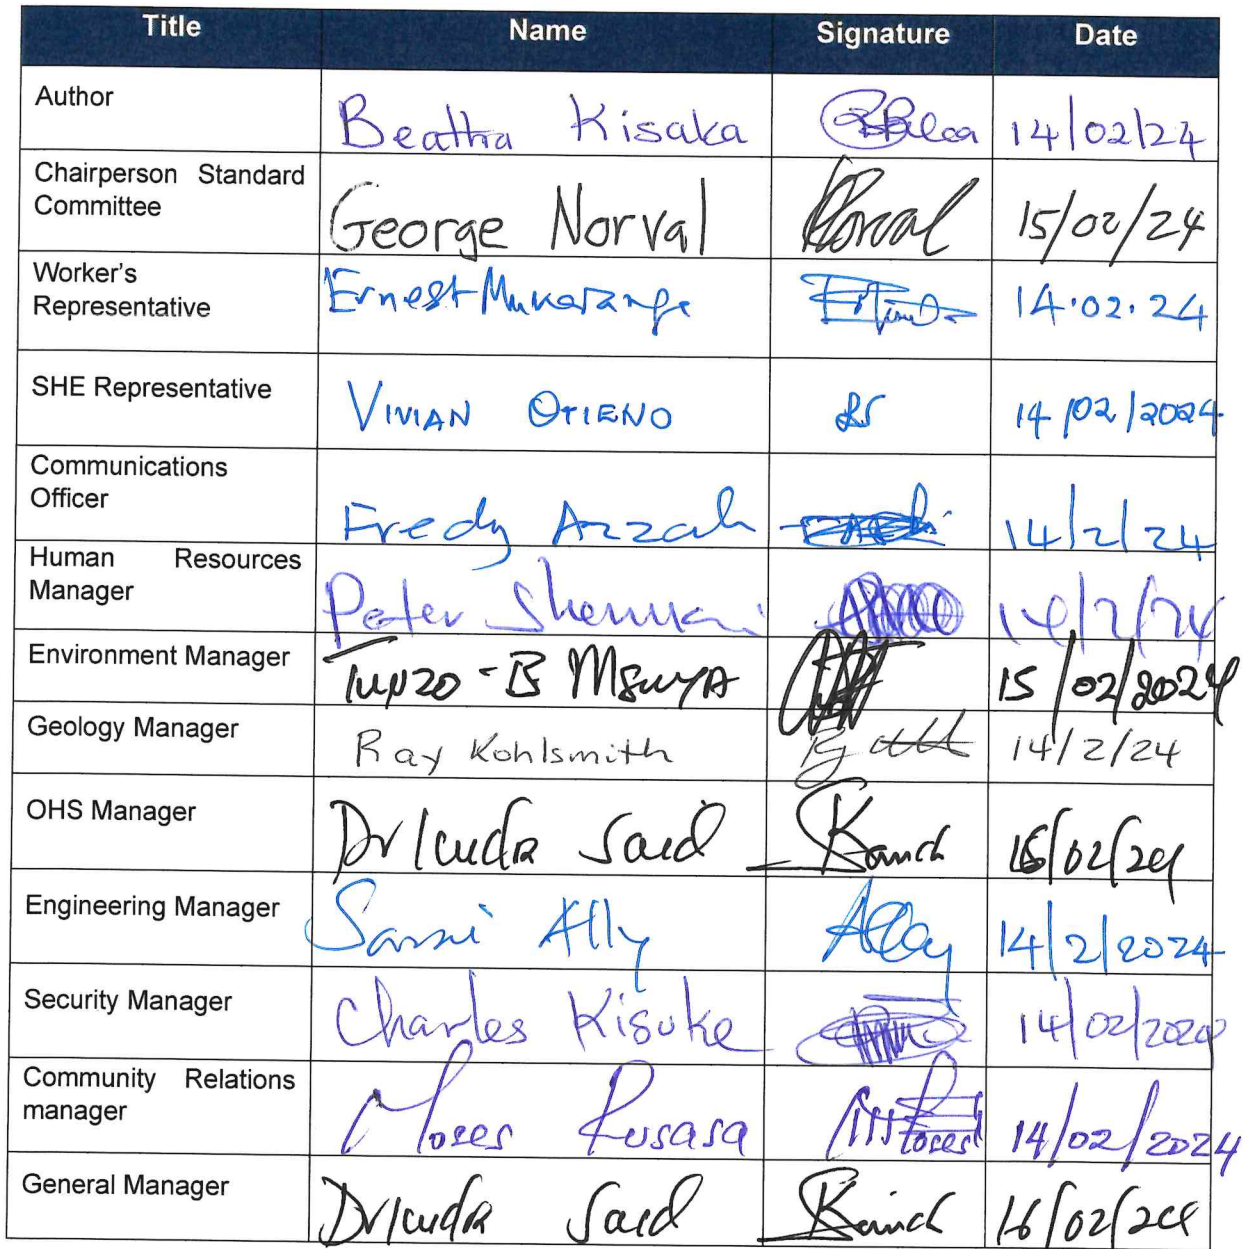 Title Name Signature Date
Author Beatha Kisaka 14/02/24
Chairperson Standard
Committee George Norval Norval 15/02/24
Worker's
Representative Ernest 14.02.24
SHE Representative VIVIAN OTIENO 14/02/2024
Communications
Officer Fredy Azzah 14/2/24
Human Resources
Manager Peter 14/2/24
Environment Manager 15/02/2024
Geology Manager Ray Kohlsmith 14/2/24
OHS Manager Said 16/02/24
Engineering Manager Sami Ally Ally 14/2/2024
Security Manager Charles Kisuke 14/02/2024
Community Relations
manager Moses Rusasa Moses 14/02/2024
General Manager Said 16/02/24